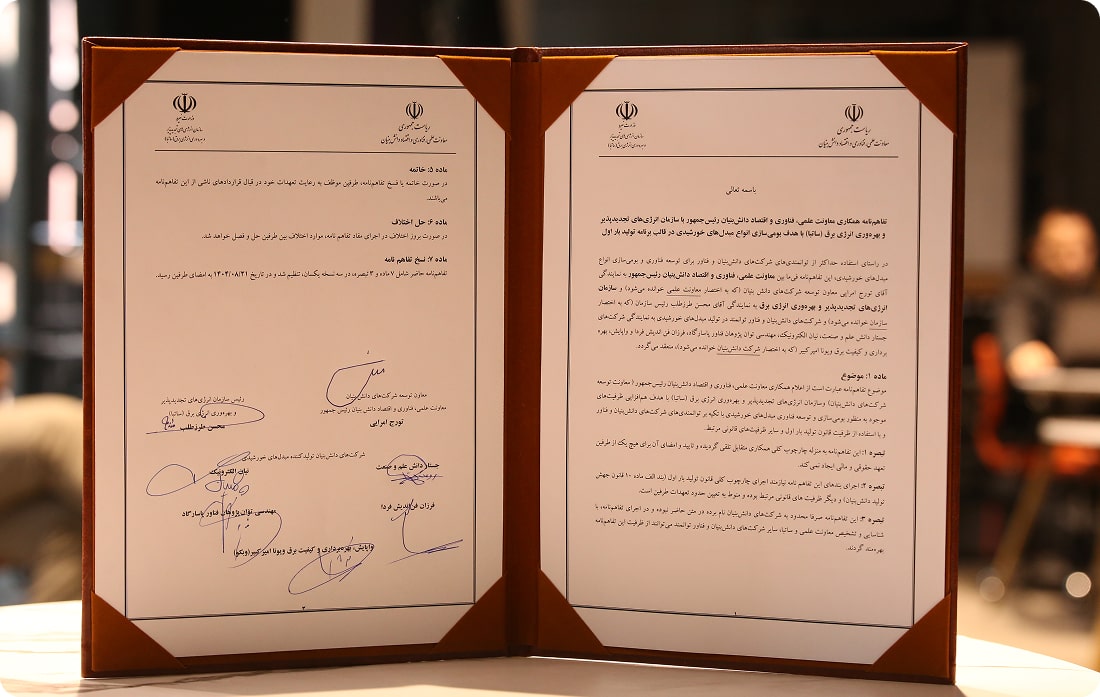 ریاست جمهوری
معاونت علمی، فناوری و اقتصاد دانش‌بنیان
وزارت نیرو
سازمان انرژی‌های تجدیدپذیر
و بهره‌وری انرژی برق (ساتبا)
باسمه تعالی
تفاهم‌نامه همکاری معاونت علمی، فناوری و اقتصاد دانش‌بنیان رئیس‌جمهور با سازمان انرژی‌های تجدیدپذیر
و بهره‌وری انرژی برق (ساتبا) با هدف بومی‌سازی انواع مبدل‌های خورشیدی در قالب برنامه تولید بار اول
در راستای استفاده حداکثر از توانمندی‌های شرکت‌های دانش‌بنیان و فناور برای توسعه فناوری و بومی‌سازی انواع
مبدل‌های خورشیدی، این تفاهم‌نامه فی‌ما بین معاونت علمی، فناوری و اقتصاد دانش‌بنیان رئیس‌جمهور به نمایندگی
آقای تورج امرایی معاون توسعه شرکت‌های دانش بنیان (که به اختصار معاونت علمی خوانده می‌شود) و سازمان
انرژی‌های تجدیدپذیر و بهره‌وری انرژی برق به نمایندگی آقای محسن طرزطلب رئیس سازمان (که به اختصار
سازمان خوانده می‌شود) و شرکت‌های دانش‌بنیان و فناور توانمند در تولید مبدل‌های خورشیدی به نمایندگی شرکت‌های
جستار دانش علم و صنعت، نیان الکترونیک، مهندسی توان پژوهان فناور پاسارگاد، فرزان فن اندیش فردا و واپایش، بهره
برداری و کیفیت برق ویونا امیرکبیر (که به اختصار شرکت دانش‌بنیان خوانده می‌شود)، منعقد می‌گردد.
ماده ۱: موضوع
موضوع تفاهم‌نامه عبارت است از اعلام همکاری معاونت علمی، فناوری و اقتصاد دانش‌بنیان رئیس‌جمهور ( معاونت توسعه
شرکت‌های دانش‌بنیان) وسازمان انرژی‌های تجدیدپذیر و بهره‌وری انرژی برق (ساتبا) با هدف هم‌افزایی ظرفیت‌های
موجود به منظور بومی‌سازی و توسعه فناوری مبدل‌های خورشیدی با تکیه بر توانمندی‌های شرکت‌های دانش‌بنیان و فناور
و با استفاده از ظرفیت قانون تولید بار اول و سایر ظرفیت‌های قانونی مرتبط.
تبصره ۱: این تفاهم‌نامه به منزله چارچوب کلی همکاری متقابل تلقی گردیده و تایید و امضای آن برای هیچ یک از طرفین
تعهد حقوقی و مالی ایجاد نمی‌کند.
تبصره ۲: اجرای بندهای این تفاهم نامه نیازمند اجرای چارچوب کلی قانون تولید بار اول (بند الف ماده ۱۰ قانون جهش
تولید دانش‌بنیان) و دیگر ظرفیت های قانونی مرتبط بوده و منوط به تعیین حدود تعهدات طرفین است.
تبصره ۳: این تفاهم‌نامه صرفا محدود به شرکت‌های دانش‌بنیان نام برده در متن حاضر نبوده و در اجرای تفاهم‌نامه، با
شناسایی و تشخیص معاونت علمی و ساتبا، سایر شرکت‌های دانش‌بنیان و فناور توانمند می‌توانند از ظرفیت این تفاهم‌نامه
بهره‌مند گردند.
۱
ریاست جمهوری
معاونت علمی، فناوری و اقتصاد دانش‌بنیان
وزارت نیرو
سازمان انرژی‌های تجدیدپذیر
و بهره‌وری انرژی برق (ساتبا)
ماده ۵: خاتمه
در صورت خاتمه یا فسخ تفاهم‌نامه، طرفین موظف به رعایت تعهدات خود در قبال قراردادهای ناشی از این تفاهم‌نامه
می‌باشند.
ماده ۶: حل اختلاف
در صورت بروز اختلاف در اجرای مفاد تفاهم نامه، موارد اختلاف بین طرفین حل و فصل خواهد شد.
ماده ۷: نسخ تفاهم نامه
تفاهم‌نامه حاضر شامل ۷ ماده و ۳ تبصره، در سه نسخه یکسان، تنظیم شد و در تاریخ ۱۴۰۴/۰۸/۲۱ به امضای طرفین رسید.
معاون توسعه شرکت‌های دانش‌بنیان
معاونت علمی، فناوری و اقتصاد دانش‌بنیان رئیس جمهور
تورج امرایی
رئیس سازمان انرژی‌های تجدیدپذیر
و بهره‌وری انرژی برق (ساتبا)
محسن طرزطلب
شرکت‌های دانش‌بنیان تولیدکننده مبدل‌های خورشیدی
جستار دانش علم و صنعت
نیان الکترونیک
فرزان فن اندیش فردا
مهندسی توان پژوهان فناور پاسارگاد
واپایش، بهره‌برداری و کیفیت برق ویونا امیرکبیر (ویکو)
۳